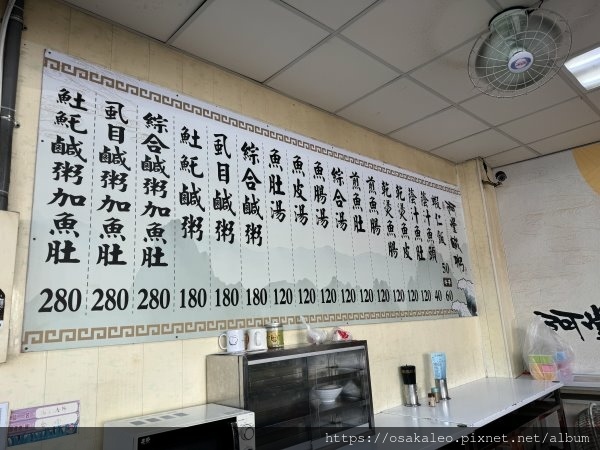 阿堂鹹粥
蝦仁飯 50 60
蔭汁魚頭 40
蔭汁魚肚 120
乾燙魚皮 120
乾燙魚腸 120
煎魚腸 120
煎魚肚 120
綜合湯 120
魚腸湯 120
魚皮湯 120
魚肚湯 120
綜合鹹粥 180
虱目鹹粥 180
𩵚魠鹹粥 180
綜合鹹粥加魚肚 280
虱目鹹粥加魚肚 280
𩵚魠鹹粥加魚肚 280
阿堂
https://osakaleo.pixnet.net/album